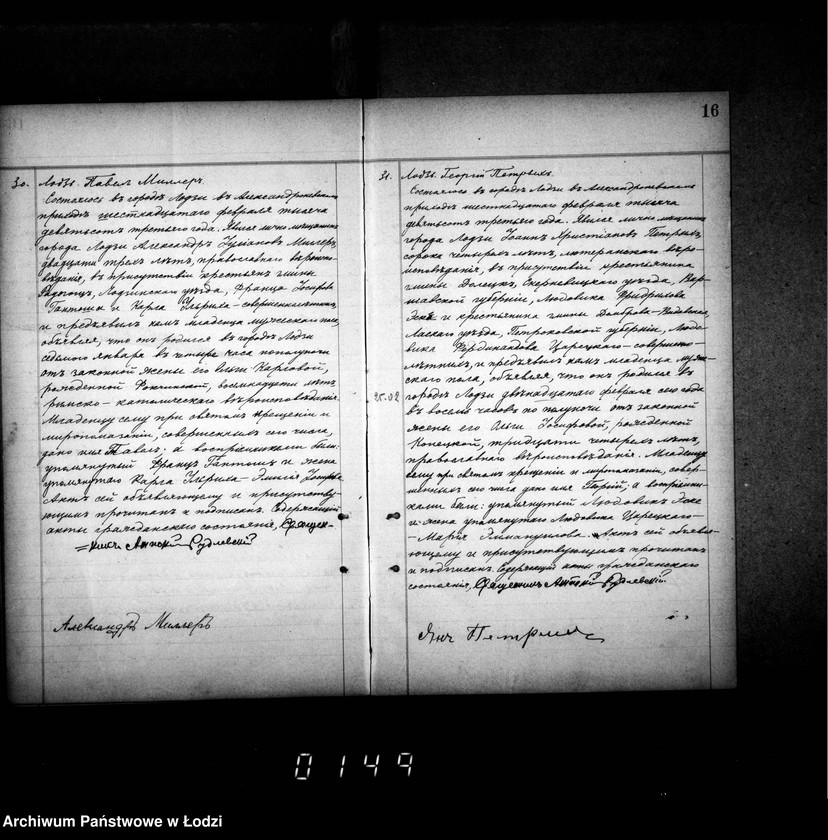 16
30. Лодзь. Павелъ Миллеръ.
Состоялось въ городѣ Лодзи въ Александроневскомъ
приходѣ шестнадцатаго февраля тысяча
девятьсотъ третьяго года. Явился лично мѣщанинъ
города Лодзи Александръ Миллеръ,
двадцати трехъ лѣтъ, православнаго вѣроиспо-
вѣданія, въ присутствіи крестьянъ гмины
Радогощъ, Лодзинскаго уѣзда, Франца
и Карла совершеннолѣтнихъ,
и предъявилъ намъ младенца мужескаго пола,
объявляя, что онъ родился въ городѣ Лодзи
седьмого января въ четыре часа пополуночи
отъ законной жены его Карловой,
рожденной восемнадцати лѣтъ
римско-католическаго вѣроисповѣданія.
Младенцу сему при святомъ крещеніи и
мѵропомазаніи, совершенныхъ сего числа,
дано имя Павелъ, а воспріемниками были:
упомянутый Францъ и жена
упомянутаго Карла
Актъ сей объявляющему и присутству-
ющимъ прочитанъ и подписанъ. Содержащій
акты гражданскаго состоянія, Священ-
=никъ Антоній Рудлевскій
Александръ Миллеръ
31. Лодзь. Георгій Петрыхъ.
Состоялось въ городѣ Лодзи въ Александроневскомъ
приходѣ шестнадцатаго февраля тысяча
девятьсотъ третьяго года. Явился лично мѣщанинъ
города Лодзи Іоаннъ Христіановъ Петрыхъ,
сорока четырехъ лѣтъ, лютеранскаго вѣро-
исповѣданія, въ присутствіи крестьянина
гмины Долецкъ, Скерневицкаго уѣзда, Вар-
шавской губерніи, Людовика Фридрихова
и крестьянина гмины Домброва-
Ласкаго уѣзда, Петроковской губерніи, Людо-
вика Фердинандова Царецкаго-совершенно-
лѣтнихъ, и предъявилъ намъ младенца муже-
скаго пола, объявляя, что онъ родился въ
25.02 городѣ Лодзи двѣнадцатаго февраля сего года
въ восемь часовъ по полуночи отъ законной
жены его Ольги Іосифовой, рожденной
Копецкой, тридцати четырехъ лѣтъ,
православнаго вѣроисповѣданія. Младенцу
сему при святомъ крещеніи и мѵропомазаніи, совер-
шенныхъ сего числа дано имя а воспріемни-
ками были: упомянутый Людовикъ
и жена упомянутаго Людовика Царецкаго-
-Марія Актъ сей объявля-
ющему и присутствующимъ прочитанъ
и подписанъ. Содержащій акты гражданскаго
состоянія, Священникъ Антоній Рудлевскій.
Янъ
0149
Archiwum Państwowe w Łodzi